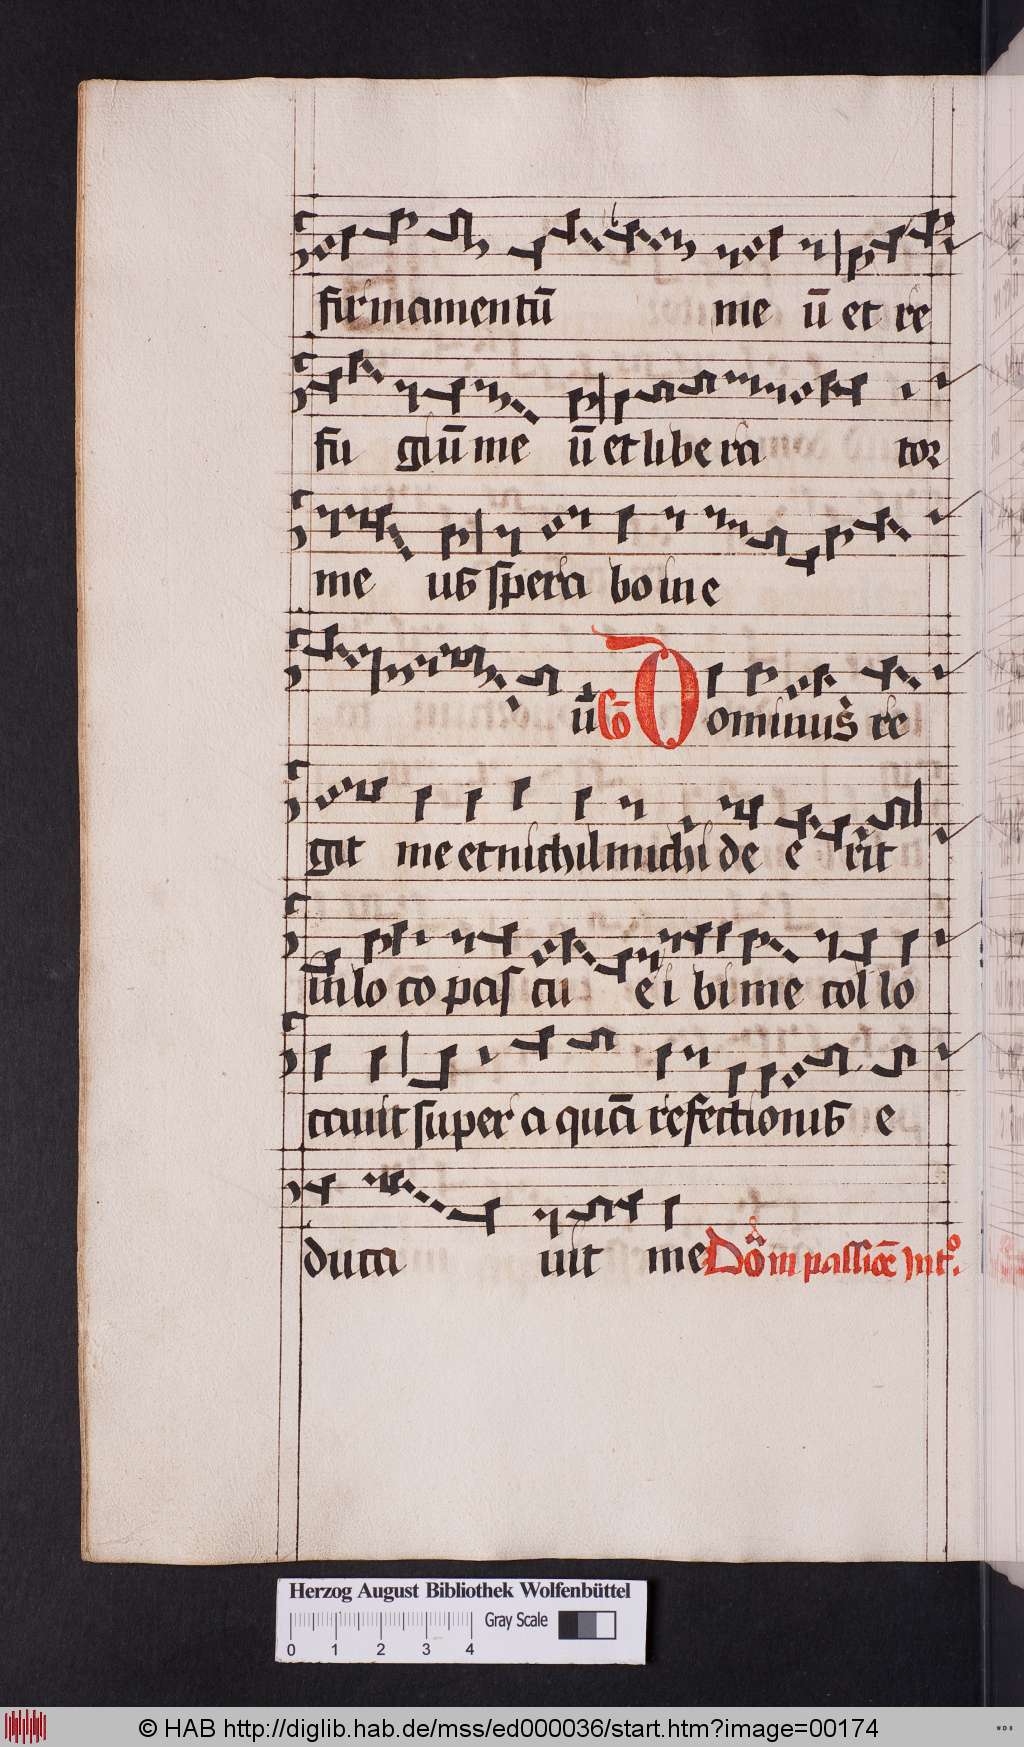 firmamentū me ū et re
fu giū me ū et libe ra tor
me us spera bo in e
ū Cō Dominus re
git me et nichil michi de e rit
in lo co pas cu e i bi me col lo
cavit super a quā refectionis e
duca vit me Dōm passiōe Int°.
Herzog August Bibliothek Wolfenbüttel
Gray Scale
0 1 2 3 4
© HAB http://diglib.hab.de/mss/ed000036/start.htm?image=00174